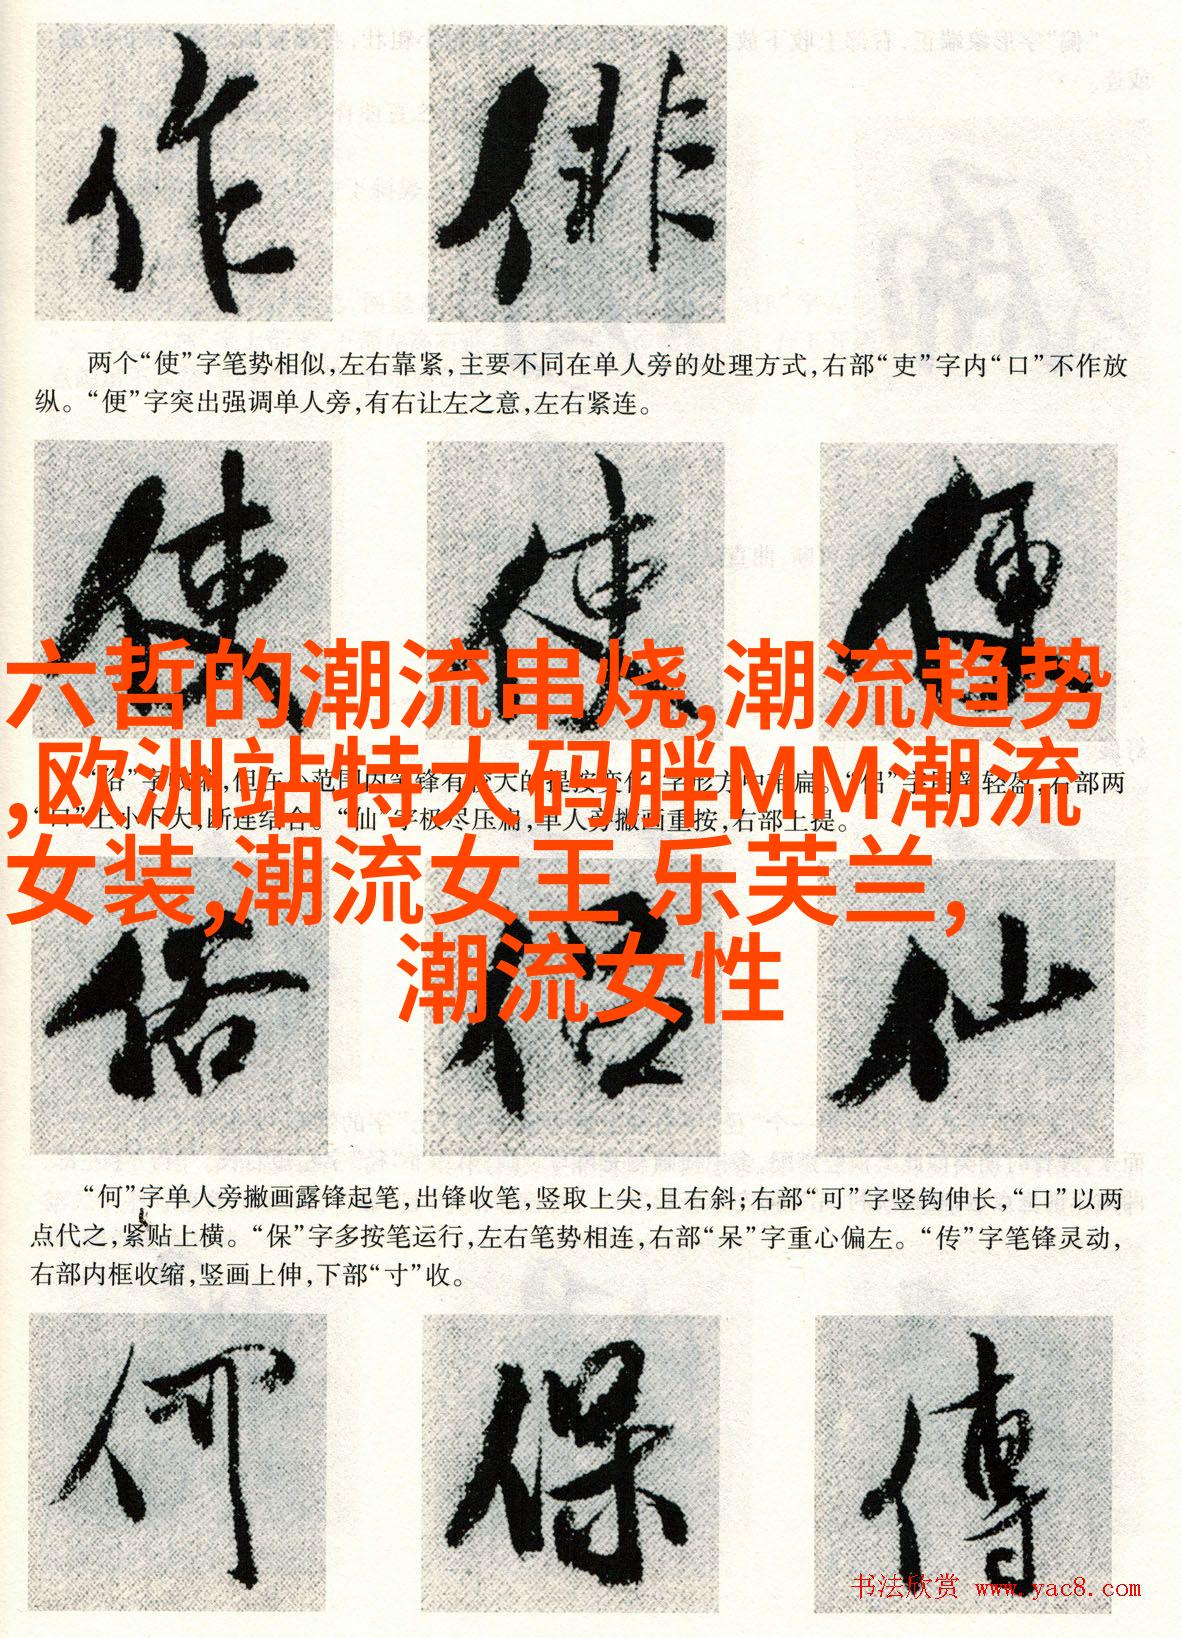 作 俳
两个“使”字笔势相似,左右靠紧,主要不同在单人旁的处理方式,右部“吏”字内“口”不作放
纵。“便”字突出强调单人旁,有右让左之意,左右紧连。
使 使 便
六哲的潮流串烧,潮流趋势
,欧洲站特大码胖MM潮流
女装,潮流女王 乐芙兰,
潮流女性
范围内笔锋有较大的提按变化,字形方中带扁。“侣”字用笔轻盈,右部两
“口”上小下大,断连结合。“仙”字极尽压扁,单人旁撇画重按,右部上提。
俗 侣 仙
“何”字单人旁撇画露锋起笔,出锋收笔,竖取上尖,且右斜;右部“可”字竖钩伸长,“口”以两
点代之,紧贴上横。“保”字多按笔运行,左右笔势相连,右部“呆”字重心偏左。“传”字笔锋灵动,
右部内框收缩,竖画上伸,下部“寸”收。
何 保 傳
书法欣赏 www.yac8.com